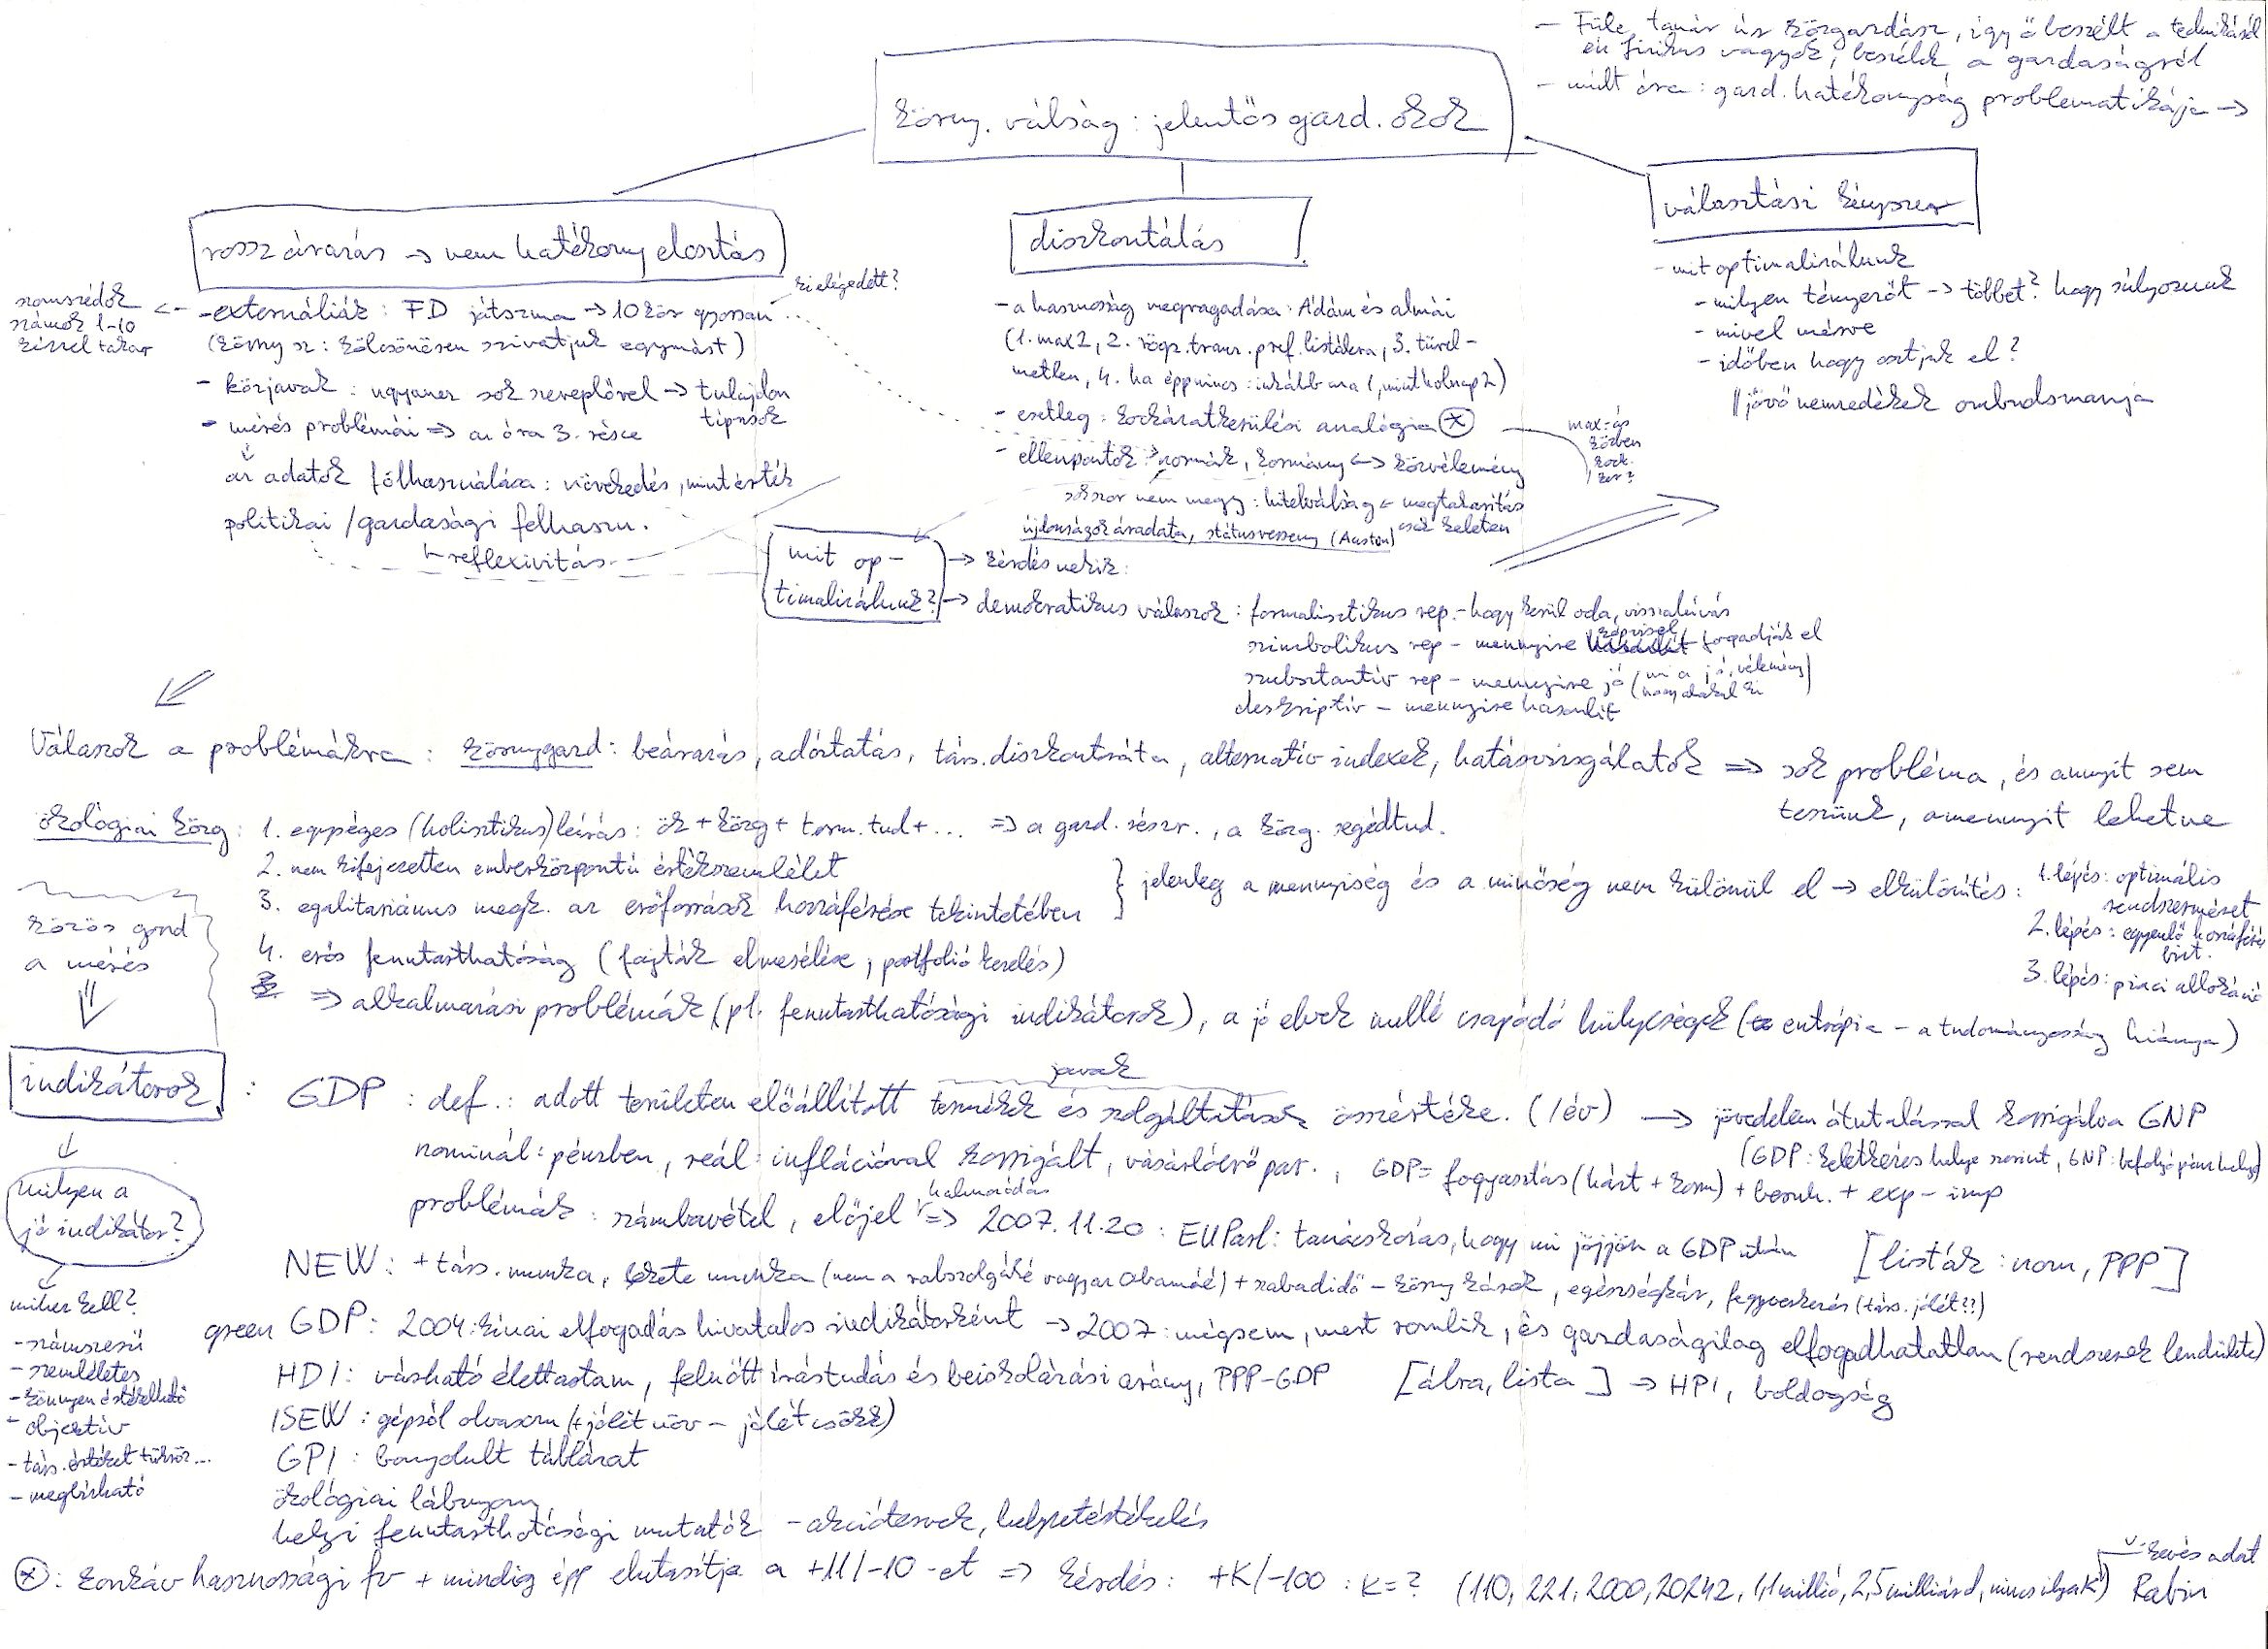 - Füle tanár úr közgardász, így ő beszélt a technikáról
én fizikus vagyok, beszélek a gardaságról
- múlt óra: gard. hatékonyság problematikája →
körny. válság: jelentős gard. okok
rossz árazás → nem hatékony elosztás
diszkontálás
választási kényszer
szomszédok
számok 1-10
kézzel takar
ki elégedett?
- externáliák: FD játszma → 10 kör gyorsan
(körny sz: kölcsönösen szivatjuk egymást)
- közjavak: ugyanez sok szereplővel → tulajdon
típusok
- mérés problémái ⇒ az óra 3. része
az adatok fölhasználása: növekedés, mint érték
politikai / gardasági felhaszn.
reflexivitás
- a hasznosság megragadása: Ádám és almái
(1. max 2, 2. rögz. tranz. pref. listákra, 3. türel-
metlen, 4. ha épp nincs: inkább ma 1, mint holnap 2)
- esetleg: kockázatkerülési analógia (*)
- ellenpontok: normák, kormány ↔ közvélemény
sokszor nem megy: hitelválság ← megtakarítás
csak keleten
újdonságok áradata, státusverseny (Auston)
max-ás
közben
kock.
ker?
- mit optimalizálunk
- milyen tényezőt → többet? hogy súlyozunk
- mivel mérve
- időben hogy osztjuk el?
jövő nemzedékek ombudsmanja
mit op-
timalizálunk?
→ kérdés nekik:
→ demokratikus válaszok: formalisztikus rep. - hogy kerül oda, visszahívás
szimbolikus rep - mennyire képvisel fogadják el
szubsztantív rep - mennyire jó (mi a jó, vélemény
hogy alakul ki)
deskriptív - mennyire hasonlít
Válaszok a problémákra: környgard: beárazás, adóztatás, társ. diszkontráta, alternatív indexek, hatásvizsgálatok ⇒ sok probléma, és annyit sem
teszünk, amennyit lehetne
ökológiai közg: 1. egységes (holisztikus) leírás: ök + közg + term. tud + ... ⇒ a gard. részr., a közg. segédtud.
2. nem kifejezetten emberközpontú értékszemlélet
3. egalitariánus megk. az erőforrások hozzáférése tekintetében
} jelenleg a mennyiség és a minőség nem különül el → elkülönítés:
1. lépés: optimális
rendszerméret
2. lépés: egyenlő hozzáférés
bizt.
3. lépés: piaci allokáció
4. erős fenntarthatóság (fajták elmesélése, portfolió kezelés)
⇒ alkalmazási problémák (pl. fenntarthatósági indikátorok), a jó elvek mellé csapódó hülyeségek (entrópia - a tudományosság hiánya)
közös gond
a mérés
indikátorok:
GDP: def.: adott területen előállított termékek és szolgáltatások összértéke. (/év) → jövedelem átutalással korrigálva GNP
javak
(GDP: keletkezés helye szerint, GNP: befolyó pénz helye)
nominál: pénzben, reál: inflációval korrigált, vásárlóerő par., GDP= fogyasztás (házt + korm) + beruh. + exp - imp
problémák: számbavétel, előjel, halmozódás ⇒ 2007.11.20: EU Parl: tanácskozás, hogy mi jöjjön a GDP után [listák: nom, PPP]
milyen a
jó indikátor?
mihez kell?
- számszerű
- szemléletes
- könnyen értékelhető
- objektív
- társ. értéket tükröz...
- megbízható
NEW: + társ. munka, fekete munka (nem a rabszolgáké vagyar Obamáé) + szabadidő - körny károk, egészségkár, fegyverkezés (társ. jólét??)
green GDP: 2004: kínai elfogadás hivatalos indikátorként → 2007: mégsem, mert romlik, és gazdaságilag elfogadhatatlan (rendszerek lendülete)
HDI: várható élettartam, felnőtt írástudás és beiskolázási arány, PPP-GDP [ábra, lista] → HPI, boldogság
ISEW: gépről olvasom (+ jólét növ - jólét csökk)
GPI: bonyolult táblázat
ökológiai lábnyom
helyi fenntarthatósági mutatók - akciótervek, helyzetértékelés
(*): konkáv hasznossági fv + mindig épp elutasítja a +11/-10-et ⇒ kérdés: +K/-100: K=? (110, 221, 2000, 20242, 1,1 millió, 2,5 milliárd, nincs ilyen K) Rabin
kevés adat